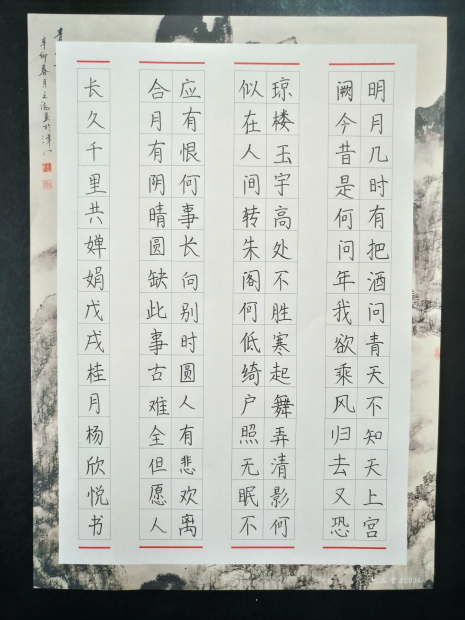 明月几时有把酒问青天不知天上宫
阙今昔是何问年我欲乘风归去又恐
琼楼玉宇高处不胜寒起舞弄清影何
似在人间转朱阁何低绮户照无眠不
应有恨何事长向别时圆人有悲欢离
合月有阴晴圆缺此事古难全但愿人
长久千里共婵娟戊戌桂月杨欣悦书
辛卯春月